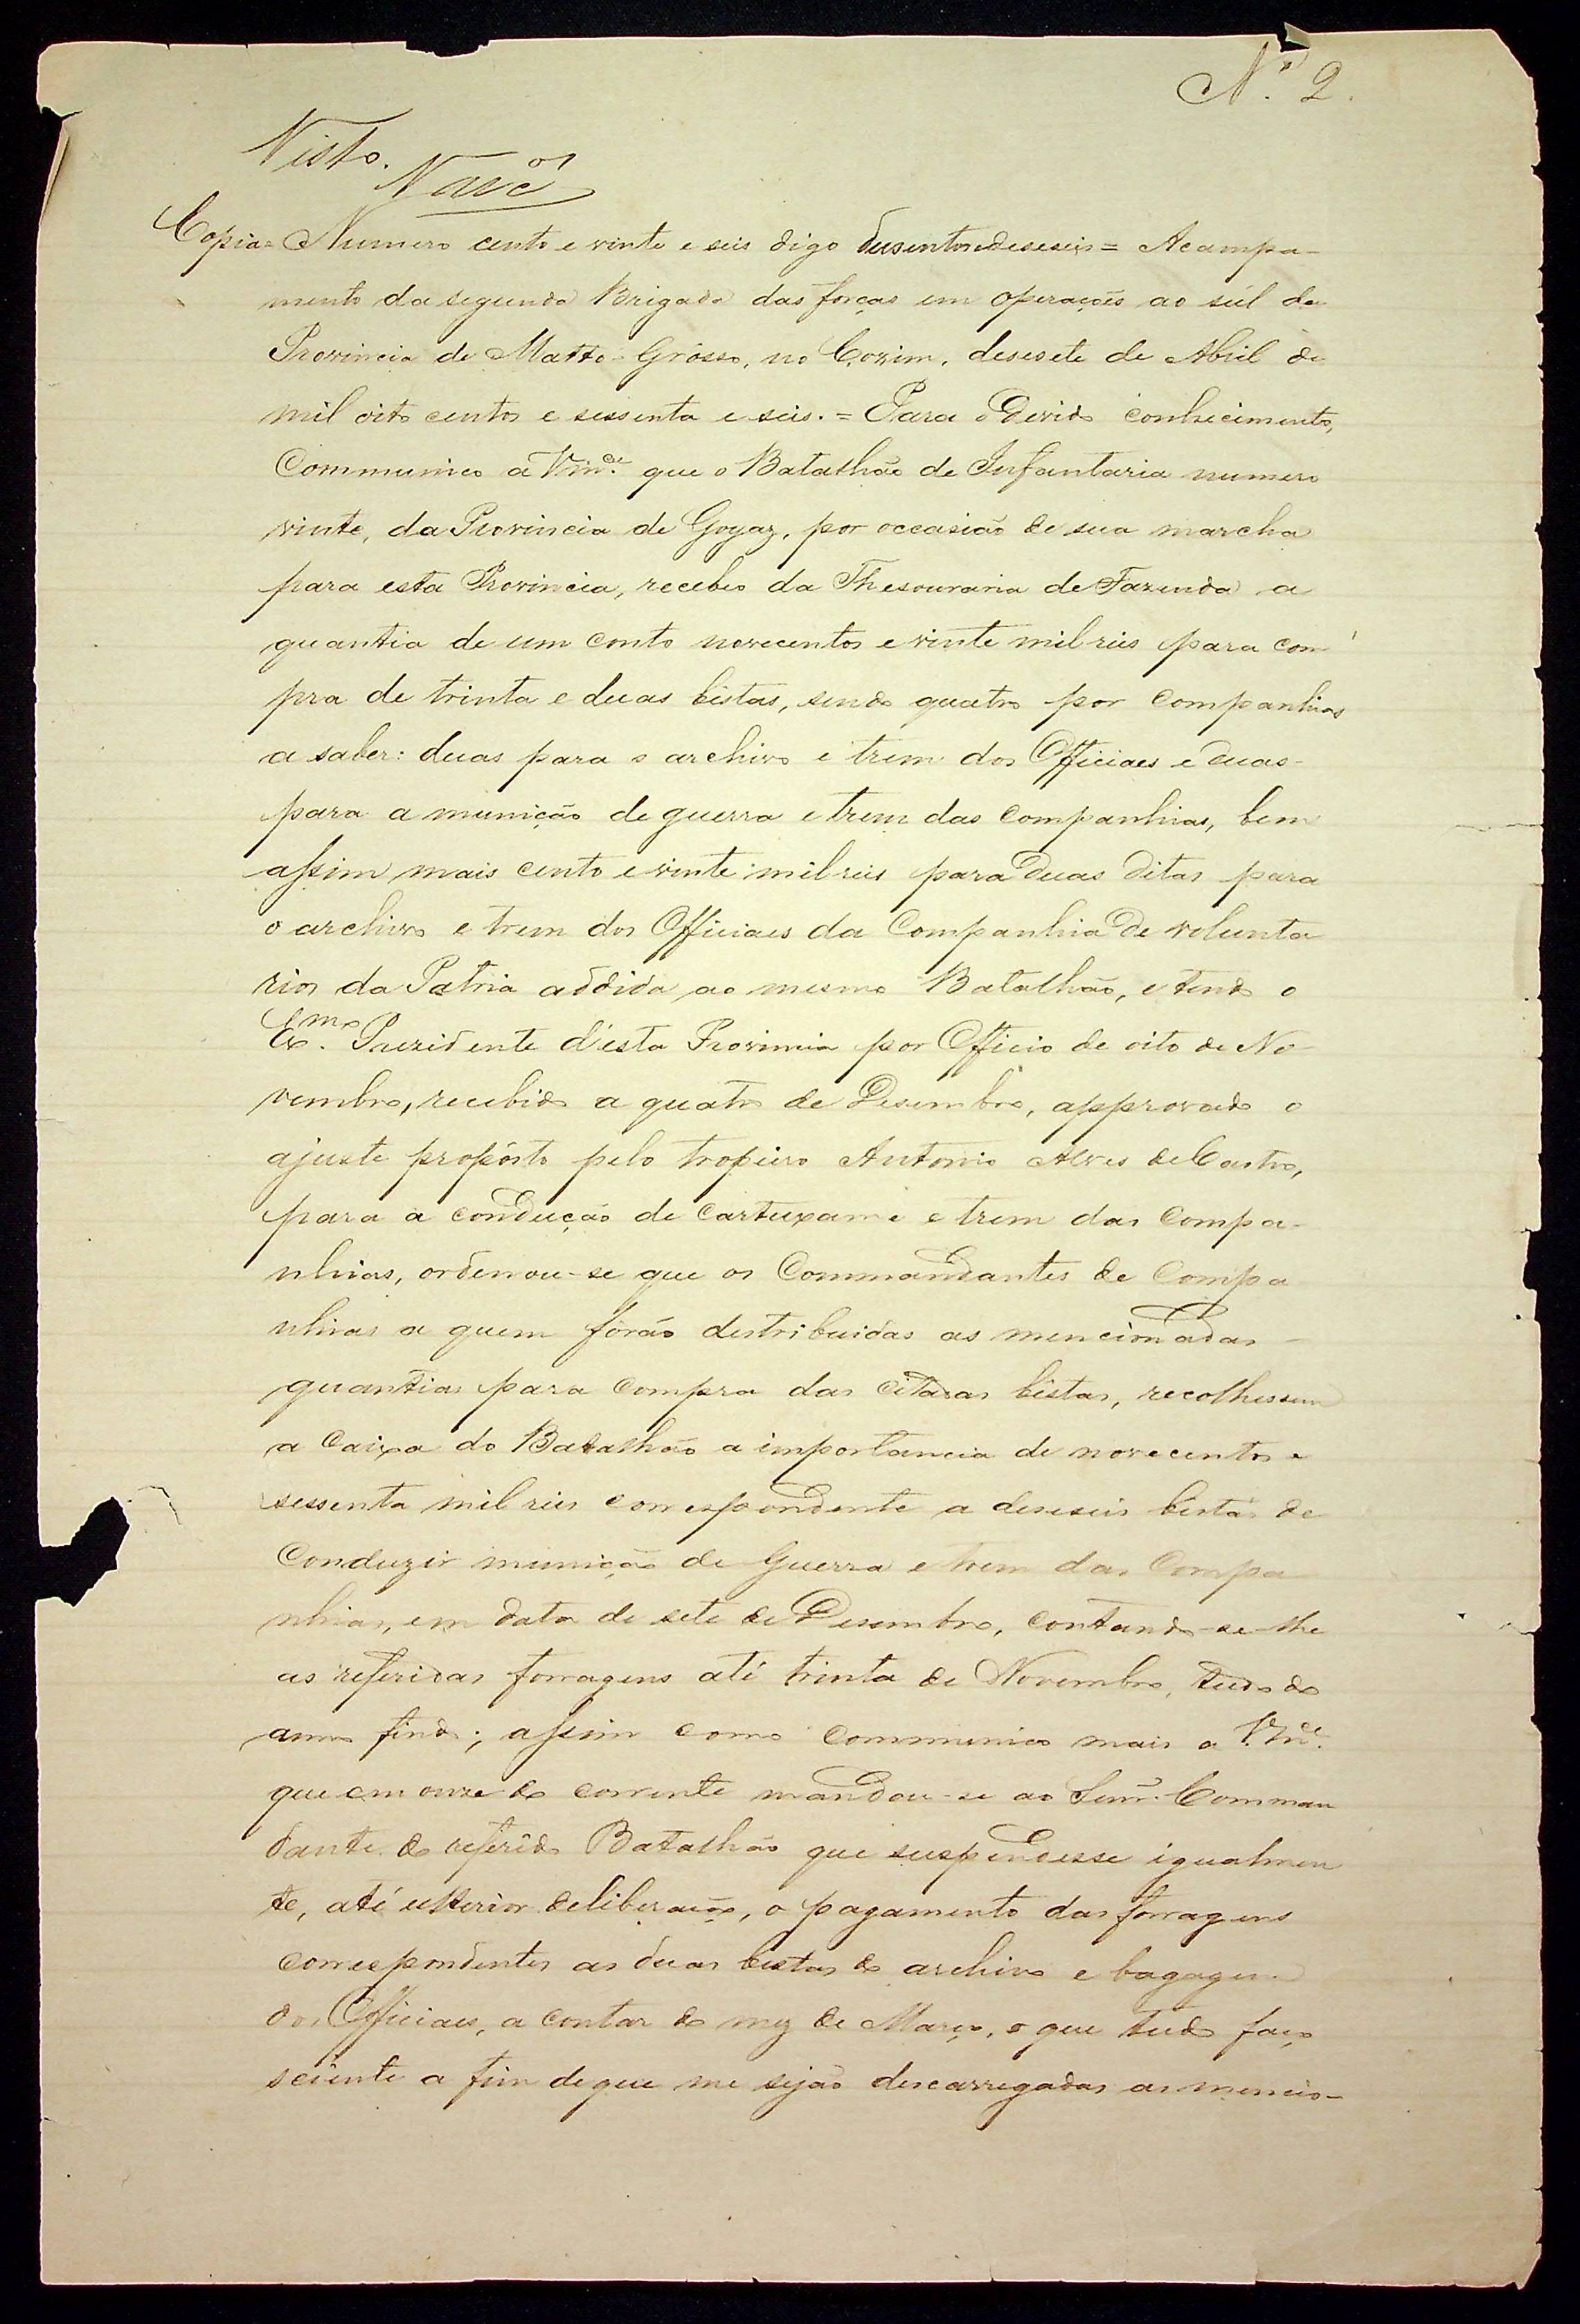 Nº 2.
Visto.
Copia = Numero cento e vinte e seis digo dusentos e deseseis = Acampa-
mento da segunda Brigada das forças em operações ao súl da
Provincia de Matto-Grôsso, no Coxim, desesete de Abril de
mil oito centos e sessenta e seis. = Para o devido conhecimento,
Communico a Vmce. que o Batalhão de Infantaria numero
vinte, da Provincia de Goyaz, por occasião de sua marcha
para esta Provincia, recebeo da Thesouraria de Fazenda a
quantia de um conto novecentos e vinte mil reis para com
pra de trinta e duas bêstas, sendo quatro por companhias
a saber: duas para o archivo e trem dos Officiaes e duas-
para a munição de guerra e trem das companhias, bem
assim mais cento e vinte mil reis para duas ditas para
o archivo e trem dos Officiaes da Companhia de volunta
rios da Patria addida ao mesmo Batalhão, e tendo o
Exmo. Prezidente d'esta Provincia por Officio de oito de No-
vembro, recebido a quatro de Desembro, approvado o
ajuste propôsto pelo tropeiro Antonio Alves de Castro,
para a condução de cartuxame e trem das compa-
nhias, ordenou-se que os Commandantes de Compa
nhias a quem fôrão destribuidas as mencionadas-
quantias para compra das citadas bêstas, recolhessem
a Caixa do Batalhão a importancia de novecentos e
sessenta mil reis correspondente a deseseis bêstas de
Conduzir munição de Guerra e trem das Compa
nhias, em data de sete de Desembro, contando-se-lhe
as referidas forragens até trinta de Novembro, tudo do
anno findo; assim como communico mais a Vmce.
que em onze do corrente mandou-se ao Senr. Comman
dante do referido Batalhão que suspendesse igualmen
te, até ulterior deliberação, o pagamento das forragens
correspondentes as duas bestas do archivo e bagagem
dos Officiaes, a contar do mez de Março, o que tudo faço
sciente a fim de que me sejão descarregadas as mencio-